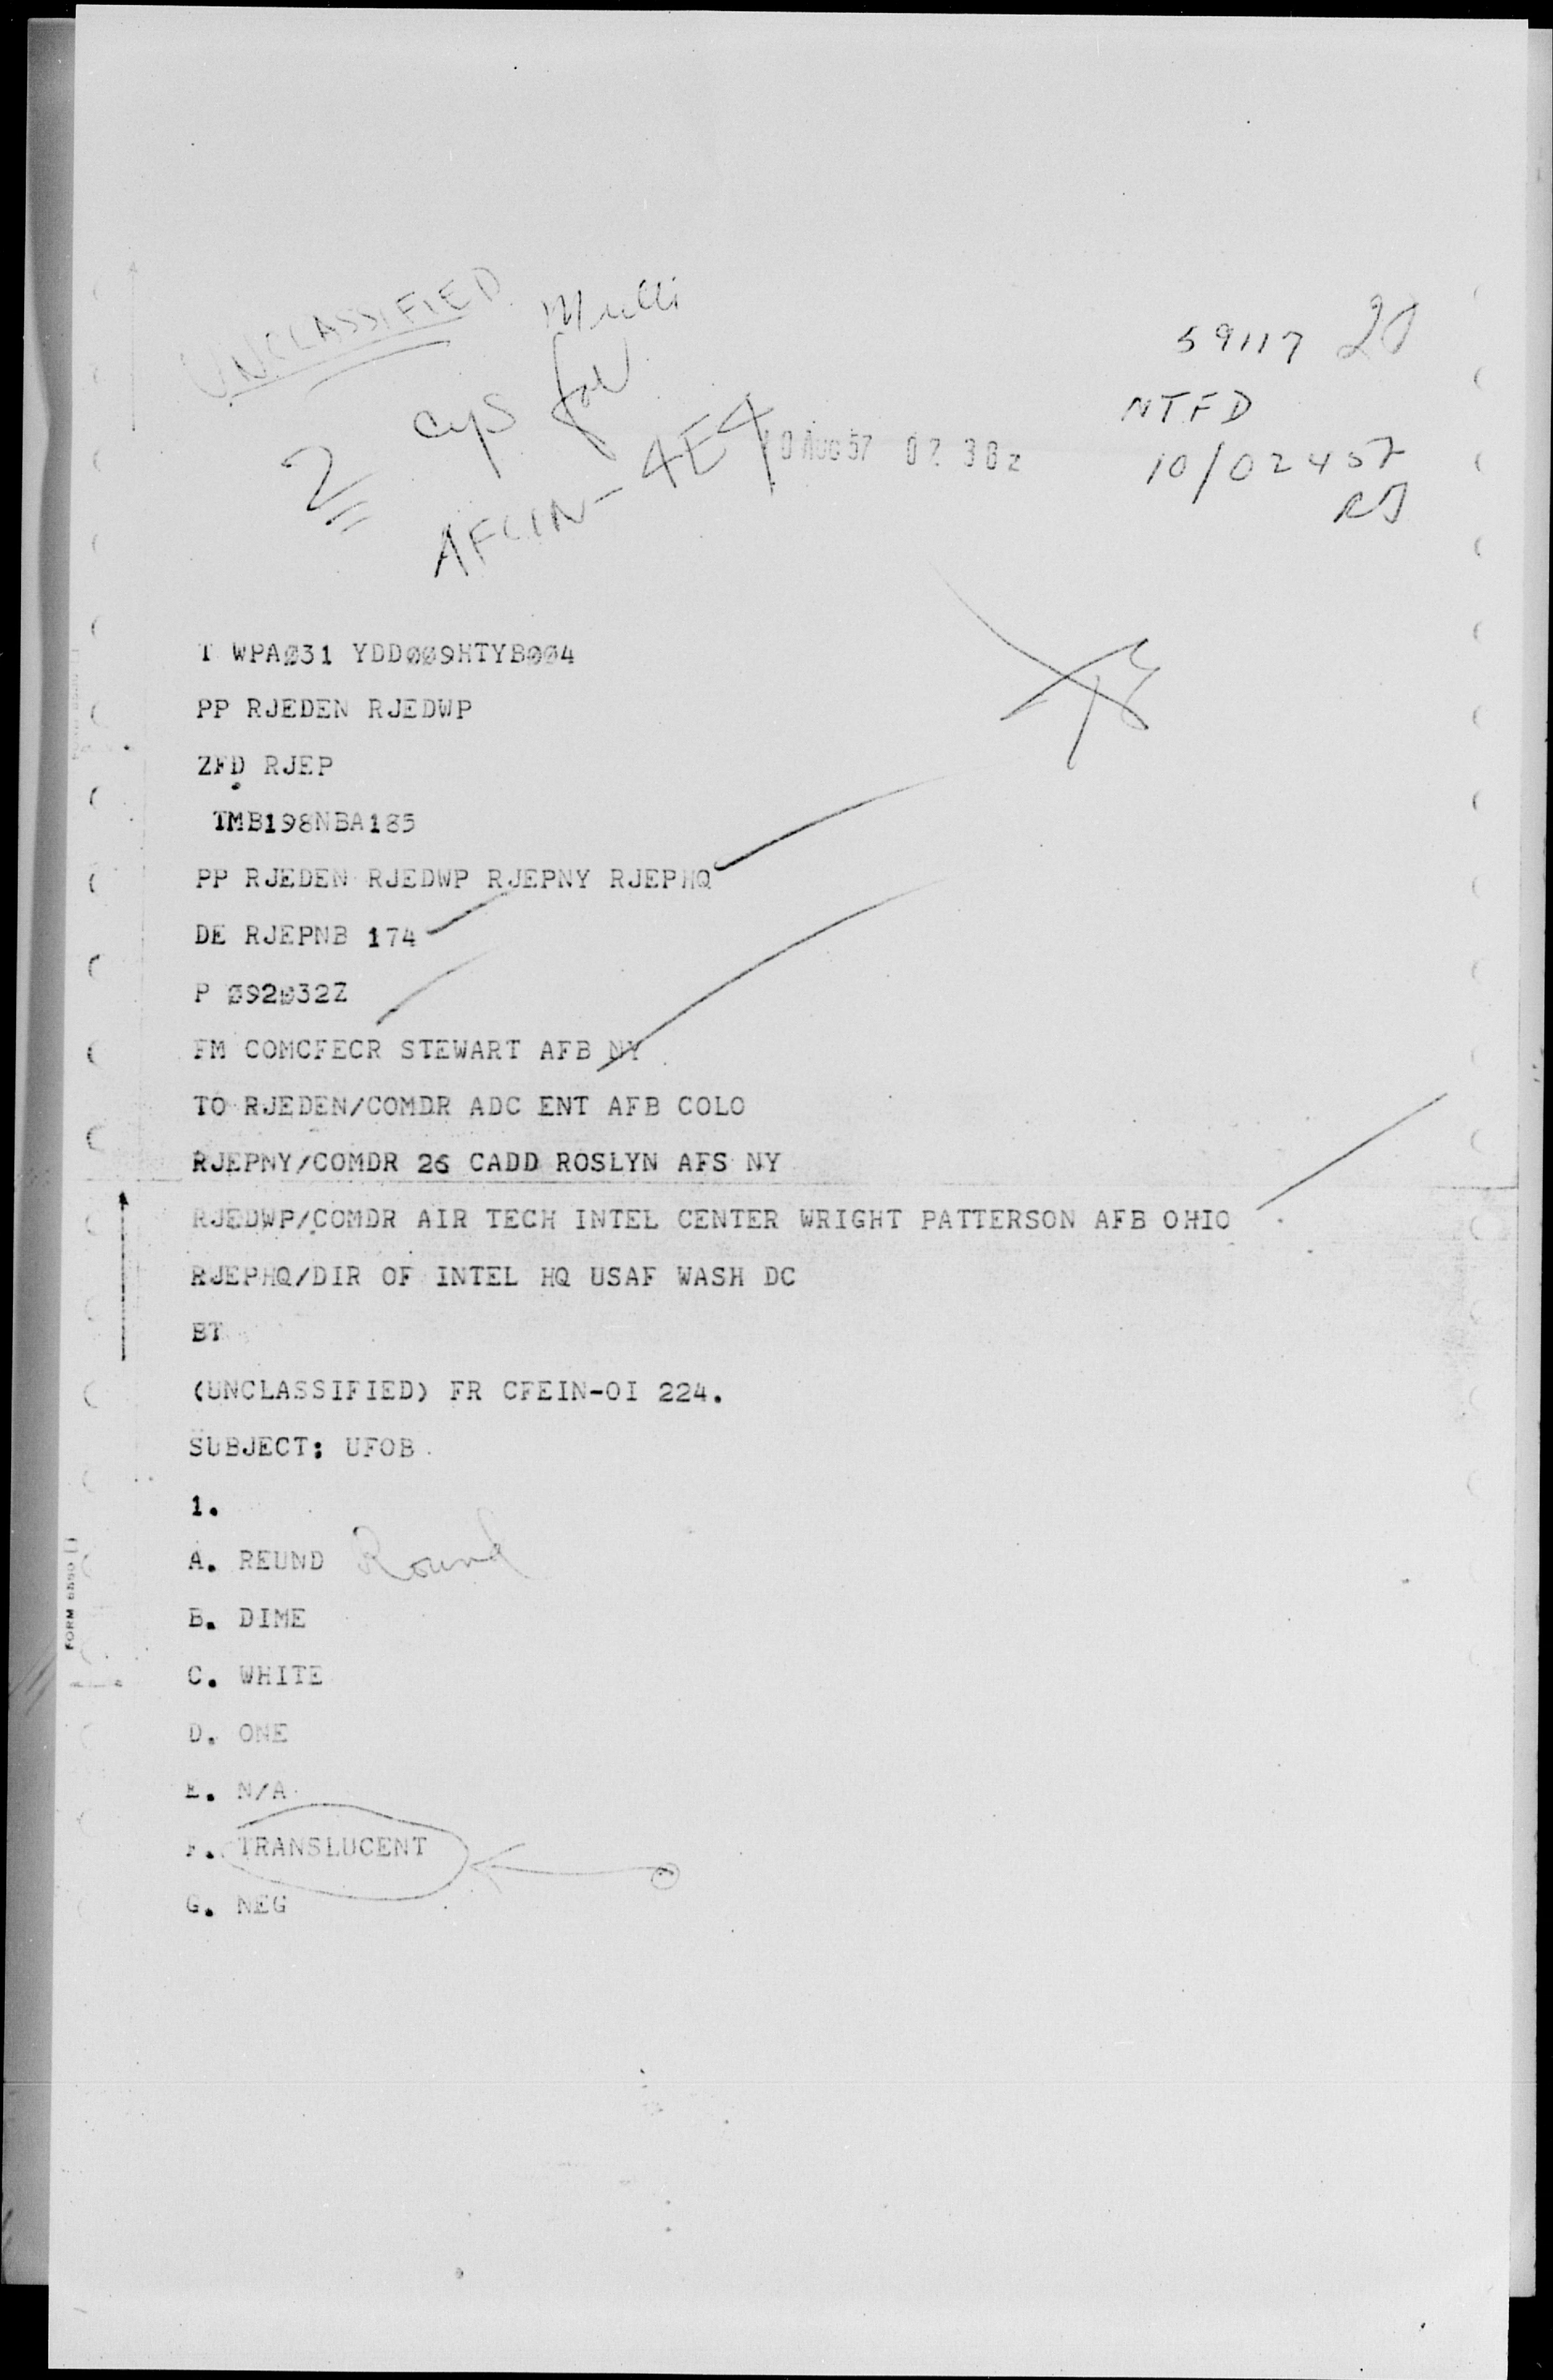 UNCLASSIFIED
2 cys for
AFCIN-4E4
10 AUG 57 02 30z
59117
NTFD
10/0245Z
RJ
T WPAØ31 YDDØØ9HTYBØØ4
PP RJEDEN RJEDWP
ZFD RJEP
TMB198NBA185
PP RJEDEN RJEDWP RJEPNY RJEPHQ
DE RJEPNB 174
P Ø92Ø32Z
FM COMCFECR STEWART AFB NY
TO RJEDEN/COMDR ADC ENT AFB COLO
RJEPNY/COMDR 26 CADD ROSLYN AFS NY
RJEDWP/COMDR AIR TECH INTEL CENTER WRIGHT PATTERSON AFB OHIO
RJEPHQ/DIR OF INTEL HQ USAF WASH DC
BT
(UNCLASSIFIED) FR CFEIN-OI 224.
SUBJECT: UFOB
1.
A. REUND Round
B. DIME
C. WHITE
D. ONE
E. N/A
F. TRANSLUCENT
G. NEG